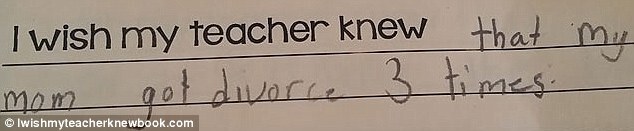 I wish my teacher knew that my
mom got divorce 3 times.
© Iwishmyteacherknewbook.com